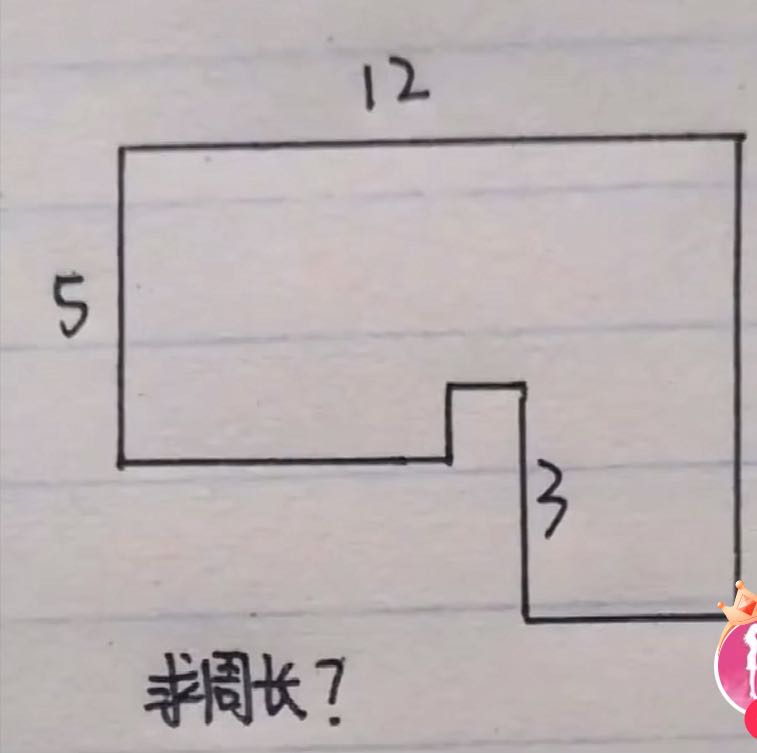 12
5
3
求周长？